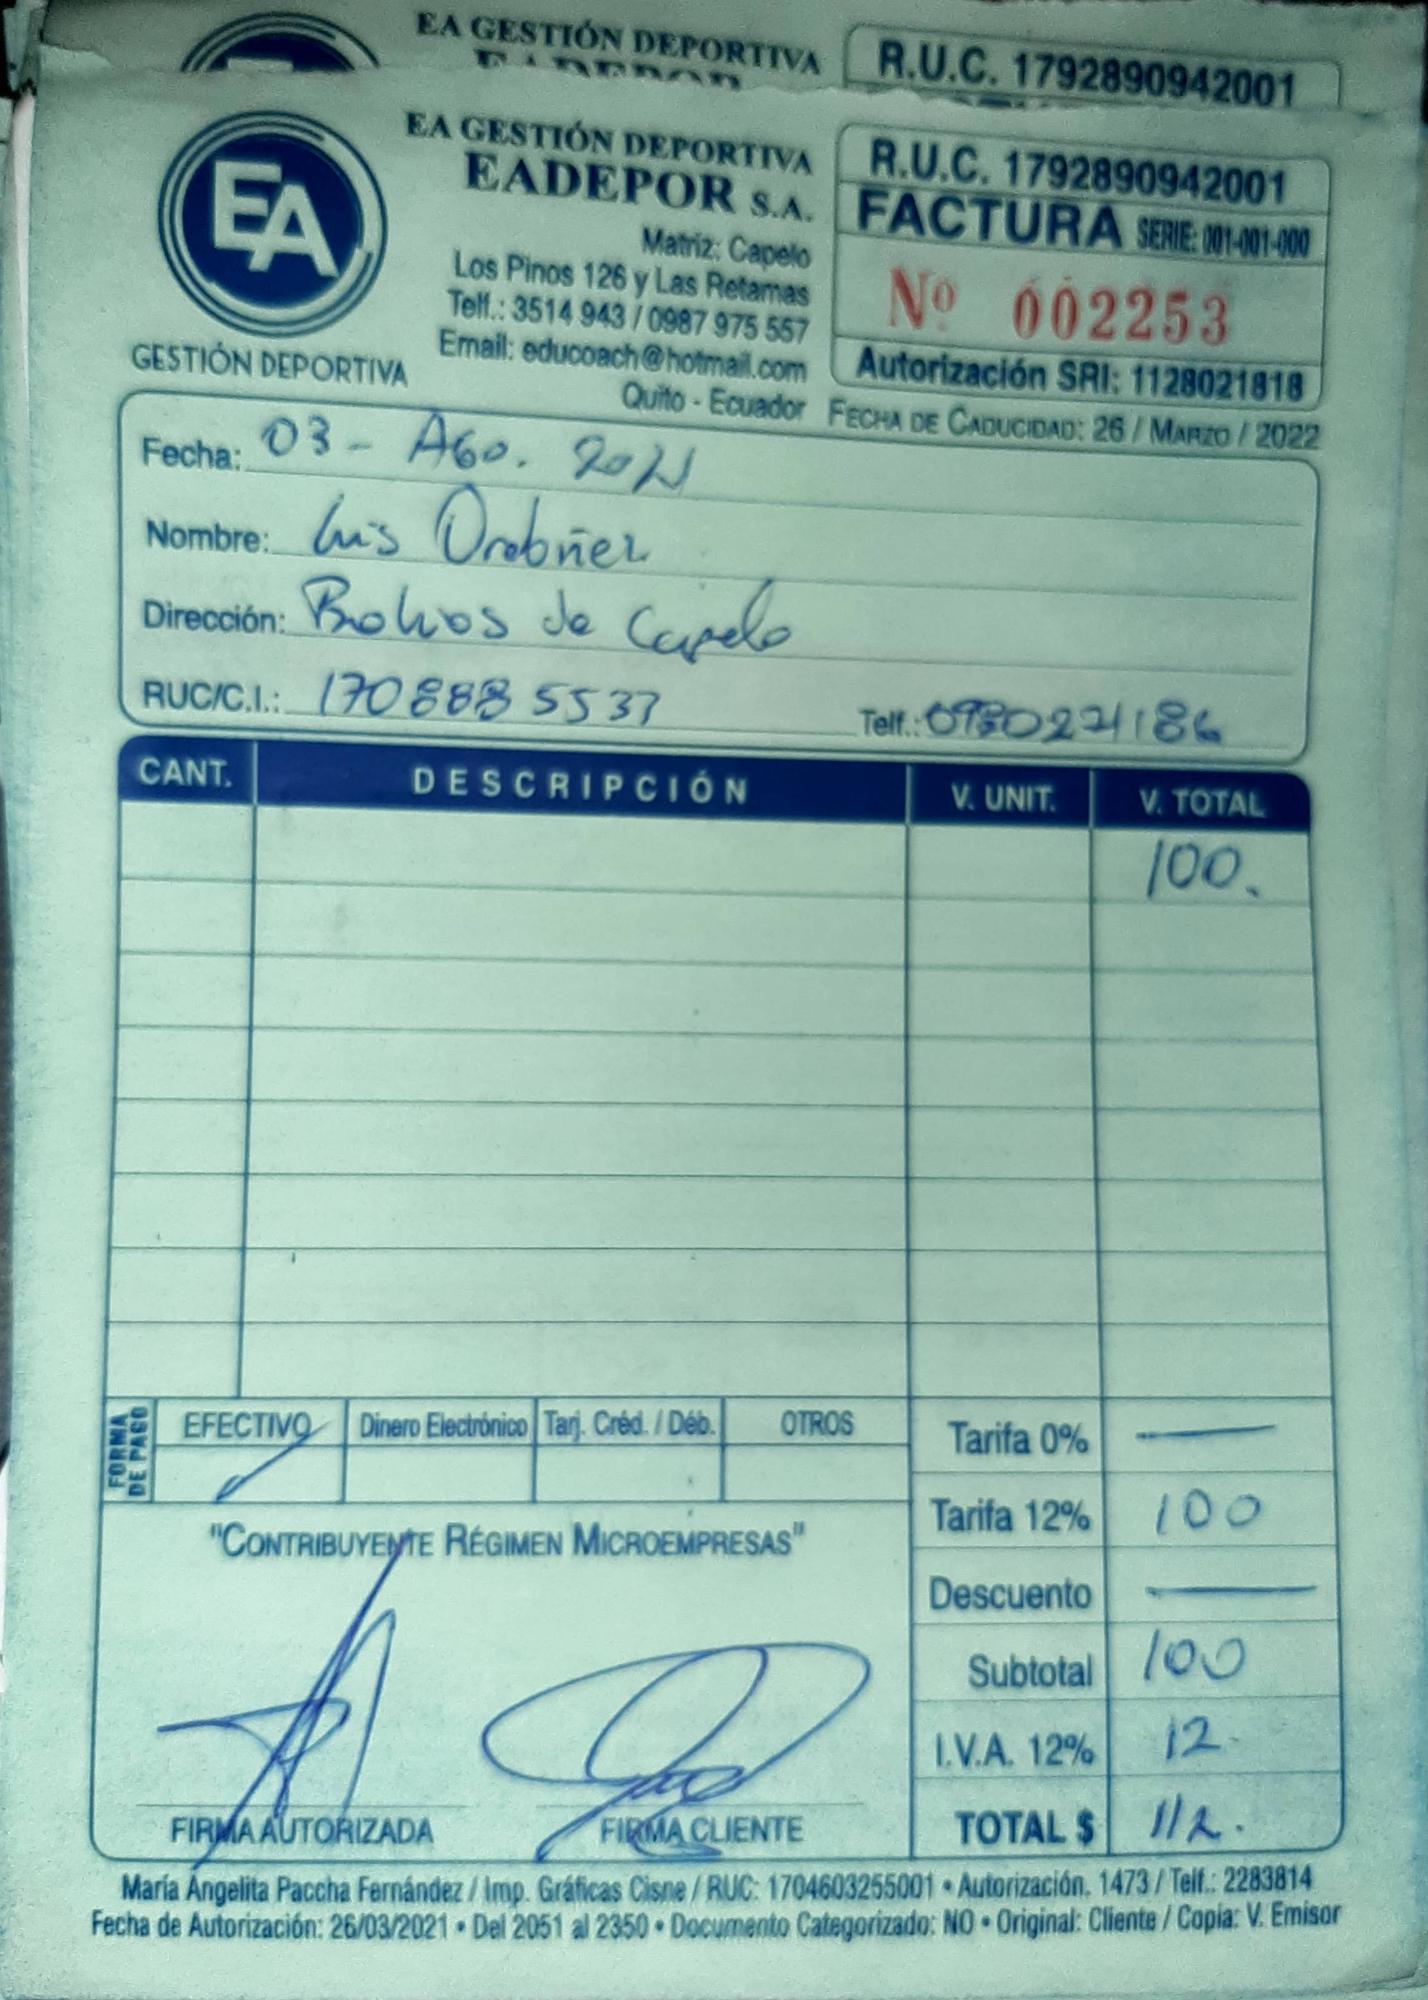 EA GESTIÓN DEPORTIVA
R.U.C. 1792890942001
EA
GESTIÓN DEPORTIVA
EA GESTIÓN DEPORTIVA
EADEPOR S.A.
Matriz: Capelo
Los Pinos 126 y Las Retamas
Telf.: 3514 943 / 0987 975 557
Email: educoach@hotmail.com
Quito - Ecuador
R.U.C. 1792890942001
FACTURA SERIE: 001-001-000
Nº 002253
Autorización SRI: 1128021818
FECHA DE CADUCIDAD: 26 / MARZO / 2022
Fecha: 03 - AGO. 2021
Nombre: Luis
Dirección: de Capelo
RUC/C.I.: 1708885537 Telf.:
CANT. DESCRIPCIÓN V. UNIT. V. TOTAL
100.
FORMA DE PAGO EFECTIVO Dinero Electrónico Tarj. Créd. / Déb. OTROS
Tarifa 0% —
Tarifa 12% 100
Descuento —
Subtotal 100
I.V.A. 12% 12.
TOTAL $ 112.
"CONTRIBUYENTE RÉGIMEN MICROEMPRESAS"
FIRMA AUTORIZADA FIRMA CLIENTE
María Angelita Paccha Fernández / Imp. Gráficas Cisne / RUC: 1704603255001 • Autorización. 1473 / Telf.: 2283814
Fecha de Autorización: 26/03/2021 • Del 2051 al 2350 • Documento Categorizado: NO • Original: Cliente / Copia: V. Emisor